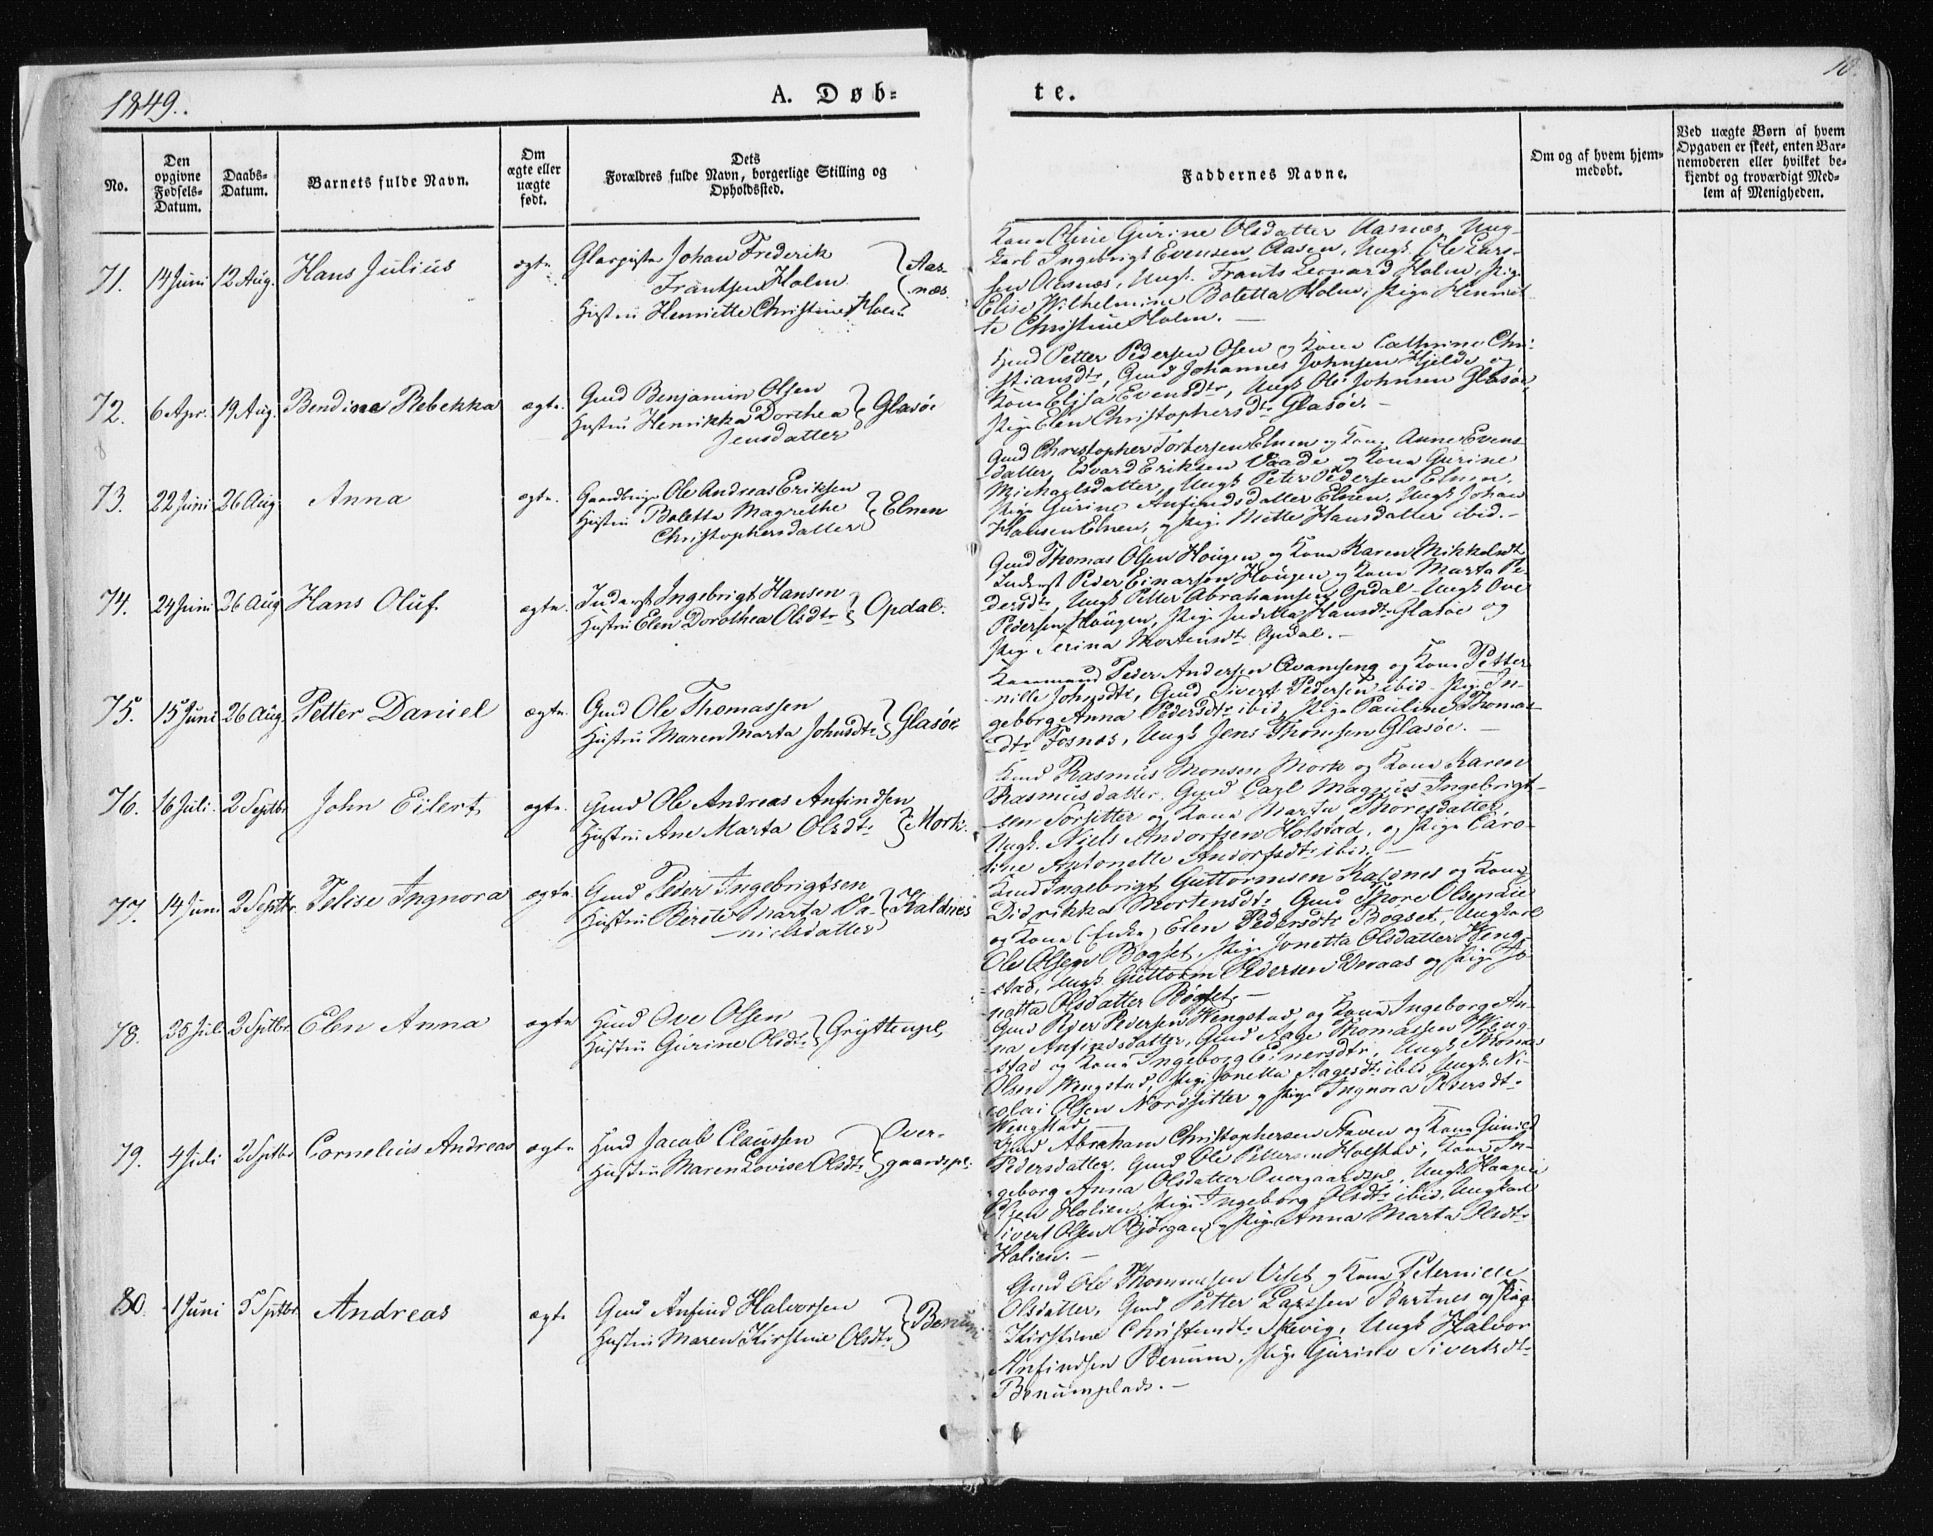 1849.
A. Døb-
te.
10.
No.
Den opgivne Fødsels-Datum.
Daabs-Datum.
Barnets fulde Navn.
Om ægte eller uægte født.
Dets
Forældres fulde Navn, borgerlige Stilling og
Opholdssted.
Faddernes Navne.
Om og af hvem hjem-
medøbt.
Ved uægte Børn af hvem
Opgaven er skeet, enten Bar-
nemoderen eller hvilket be-
kjendt og troværdigt Med-
lem af Menigheden.
71. 14 Juni 12 Aug. Hans Julius ægte
Johan Frederik
Frantsen Holm
Hustru Henriette Christine Holm
Aas-
næs.
Kone Oline Gurine Olsdatter Aasnæs, Ung-
karl Ingebrigt Evensen Aasen, Ungk. Ole Lars-
sen Aasnæs, Ungk. Frants Leonard Holm, Pige
Elise Wilhelmine Boletta Holm, Pige Henriet-
te Christine Holm.
72. 6 Apr. 19 Aug. Bendine Rebekka ægte.
Gmd Benjamin Olsen
Hustru Henrikka Dorthea
Jensdatter
Glasöe
Petter Pedersen Osen og Kone Cathrine Chri-
stiansdtr, Gmd Johannes Johnsen Hjelde og
Kone Elisa Evensdtr, Ungk Ole Johnsen Glasöe,
Pige Elen Christophersdtr Glasöe.
73. 22 Juni 26 Aug Anna ægte.
Ole Andreas Eriksen
Hustru Boletta Magrethe
Christophersdatter
Elnen
Gmd Christopher Torbersen Elnen og Kone Anne Evens-
datter, Edvard Eriksen Vaade og Kone Gurine
Michaelsdatter, Ungk Peter Pedersen Elnen,
Pige Gurine Anfindsdatter Elnen, Ungk Johan
Hansen Elnen, og Pige Mette Hansdatter ibid.
74. 24 Juni 26 Aug Hans Oluf ægte.
Inderst Ingebrigt Hansen
Hustru Elen Dorothea Olsdtr
Opdal.
Gmd Thomas Olsen Hougen og Kone Karen Mikkelsdt
Inderst Peder Einarsen Hougen og Kone Marta Pe-
dersdtr, Ungk Petter Abrahamsen Opdal, Ungk Ove
Pedersen Hougen, Pige Hansdtr Glasöe og
Pige Serina Mortensdtr Opdal.
75. 15 Juni 26 Aug. Petter Daniel ægte.
Gmd Ole Thomassen
Hustru Maren Marta Johnsdtr
Glasöe
Peder Andersen Qvameng og Kone Petter-
nille Johnsdtr, Gmd Sivert Pedersen ibid. Pige In-
geborg Anna Pedersdtr ibid, Pige Pauline Thomas-
dtr Fosnæs, Ungk Jens Thomsen Glasöe.
76. 16 Juli. 2 Septbr John Eilert ægte.
Gmd Ole Andreas Anfindsen
Hustru Ane Marta Olsdtr
Mork.
Rasmus Monsen Mork og Kone Karen
Rasmusdatter, Gmd Carl Magnus Ingebrigt-
sen Sorsetter og Kone Marta Thoresdatter
Ungk. Niels Andorfsen Holstad, og Pige Caro-
line Antonette Andorfsdtr ibid.
77. 14 Juni 2 Septbr. Felise Ingnora ægte
Gmd Peder Ingebrigtsen
Hustru Berete Marta Da-
nielsdatter
Kaldnes
Gmd Ingebrigt Guttormsen Kaldnes og Kone
Didrikka Mortensdtr, Gmd Thore Olsen
og Kone (Enke) Elen Pedersdtr Bogset, Ungkarl
Ole Olsen Bogset, Pige Jonetta Olsdatter Weng-
stad, Ungk. Guttorm Pedersen Deraas og Pige Jo-
netta Olsdatter Bogset.
78. 25 Juli 2 Sptbr. Elen Anna ægte
Hmd Ove Olsen
Hustru Gurine Olsdtr
Gryttenpl.
Gmd Peder Pedersen Wengstad og Kone Ingeborg An-
na Anfindsdatter, Gmd Aage Thomassen Weng-
stad og Kone Ingeborg Einersdtr, Ungk Thomas
Olsen Wengstad, Pige Jonetta Aagesdtr ibid, Ungk. Ni-
colai Olsen Nordsetter og Pige Ingnora Pedersdtr
Wengstad.
79. 4 Juli 2 Sptbr Cornelius Andreas ægte
Hmd Jacob Claussen
Hustru Maren Lovise Olsdtr
Over-
gaardspl.
Gmd Abraham Christophersen Staven og Kone Gunild
Pedersdatter, Gmd Ole Pettersen Holstad, Kone In-
geborg Anna Olsdatter Overgaardspl, Ungk Haagen
Olsen Halien, Pige Ingeborg Olsdtr ibid, Ungkarl
Sivert Olsen Bjørgan og Pige Anna Marta Olsdtr
Halien.
80. 1 Juni 5 Sptbr. Andreas ægte
Gmd Anfind Halvorsen
Hustru Maren Kirstine Olsdtr
Benum
Gmd Ole Thommesen Veset og Kone Peternille
Olsdatter, Gmd Petter Larssen Bartnes og Pige
Kirstine Christensdtr Skevig, Ungk Halvor
Anfindsen Benum, Pige Gurine Sivertsdtr
Benumplads.